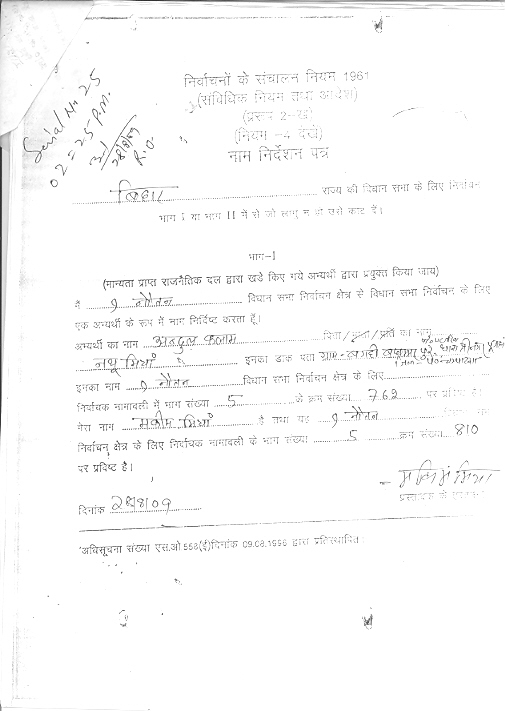 Serial No 25
02=25 P.M.
28/8/09
R.O.
निर्वाचनों के संचालन नियम 1961
(संविधिक नियम तथा आदेश)
(प्ररूप 2-ख)
(नियम -4 देखें)
नाम निर्देशन पत्र
बिहार राज्य की विधान सभा के लिए निर्वाचन
भाग I या भाग II में से जो लागू न हो उसे काट दें।
भाग-I
(मान्यता प्राप्त राजनैतिक दल द्वारा खडे किए गये अभ्यर्थी द्वारा प्रयुक्त किया जाय)
मैं 9 नौतन विधान सभा निर्वाचन क्षेत्र से विधान सभा निर्वाचन के लिए
एक अभ्यर्थी के रूप में नाम निर्दिष्ट करता हूँ।
अभ्यर्थी का नाम अब्दुल कलाम पिता/माता/पति का नाम
नथू मियाँ है इनका डाक पता ग्राम-
इनका नाम 9 नौतन विधान सभा निर्वाचन क्षेत्र के लिए
निर्वाचक नामावली में भाग संख्या 5 के क्रम संख्या 762 पर प्रविष्ट है।
मेरा नाम है तथा यह 9 नौतन विधान सभा
निर्वाचन क्षेत्र के लिए निर्वाचक नामावली के भाग संख्या 5 क्रम संख्या 810
पर प्रविष्ट है।
दिनांक 28/8/09
प्रस्तावक के हस्ताक्षर
*अधिसूचना संख्या एस.ओ 558(ई)दिनांक 09.08.1996 द्वारा प्रतिस्थापित